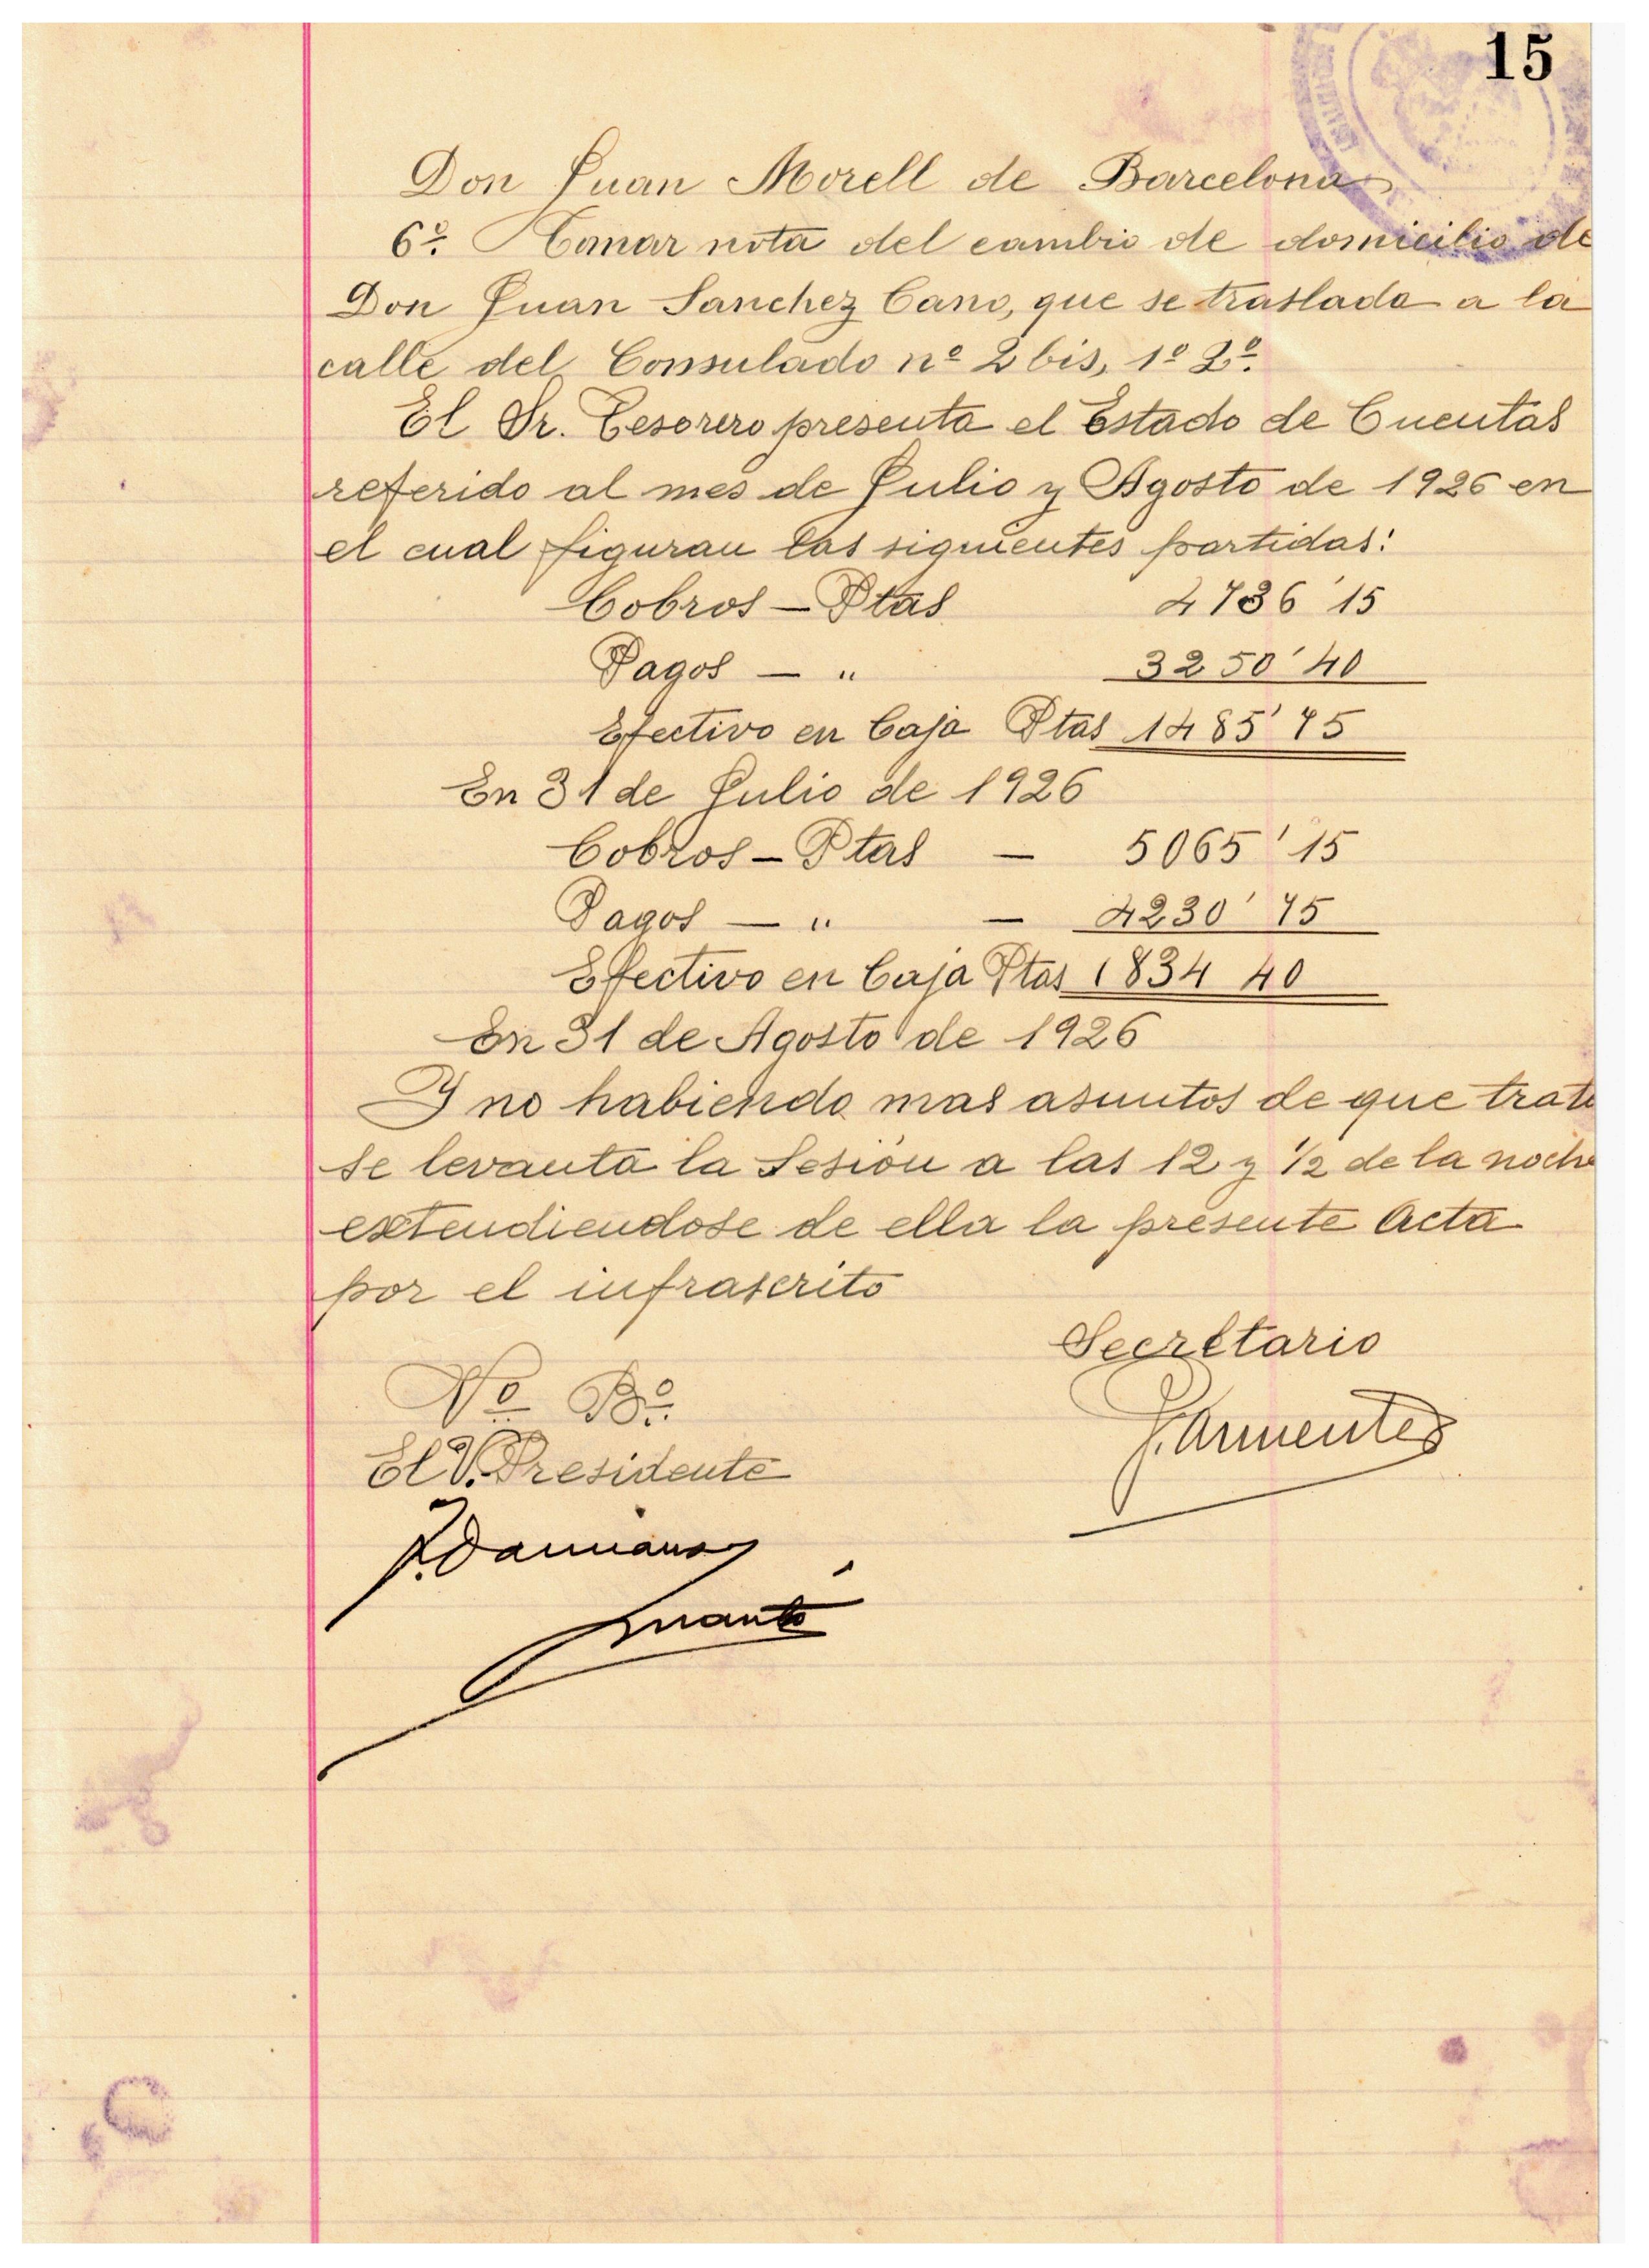 15
Don Juan Morell de Barcelona
6º. Tomar nota del cambio de domicilio de
Don Juan Sanchez Cano, que se traslada a la
calle del Consulado nº 2 bis, 1º 2º.
El Sr. Tesorero presenta el Estado de Cuentas
referido al mes de Julio y Agosto de 1926 en
el cual figuran las siguientes partidas:
Cobros — Ptas 4736'15
Pagos — " 3250'40
Efectivo en Caja Ptas 1485'75
En 31 de Julio de 1926
Cobros — Ptas — 5065'15
Pagos — " — 4230'75
Efectivo en Caja Ptas 1834 40
En 31 de Agosto de 1926
Y no habiendo mas asuntos de que trata
se levanta la Sesión a las 12 y ½ de la noche
extendiendose de ella la presente Acta
por el infrascrito
Secretario
Vº Bº.
J. Armenter
El V. Presidente